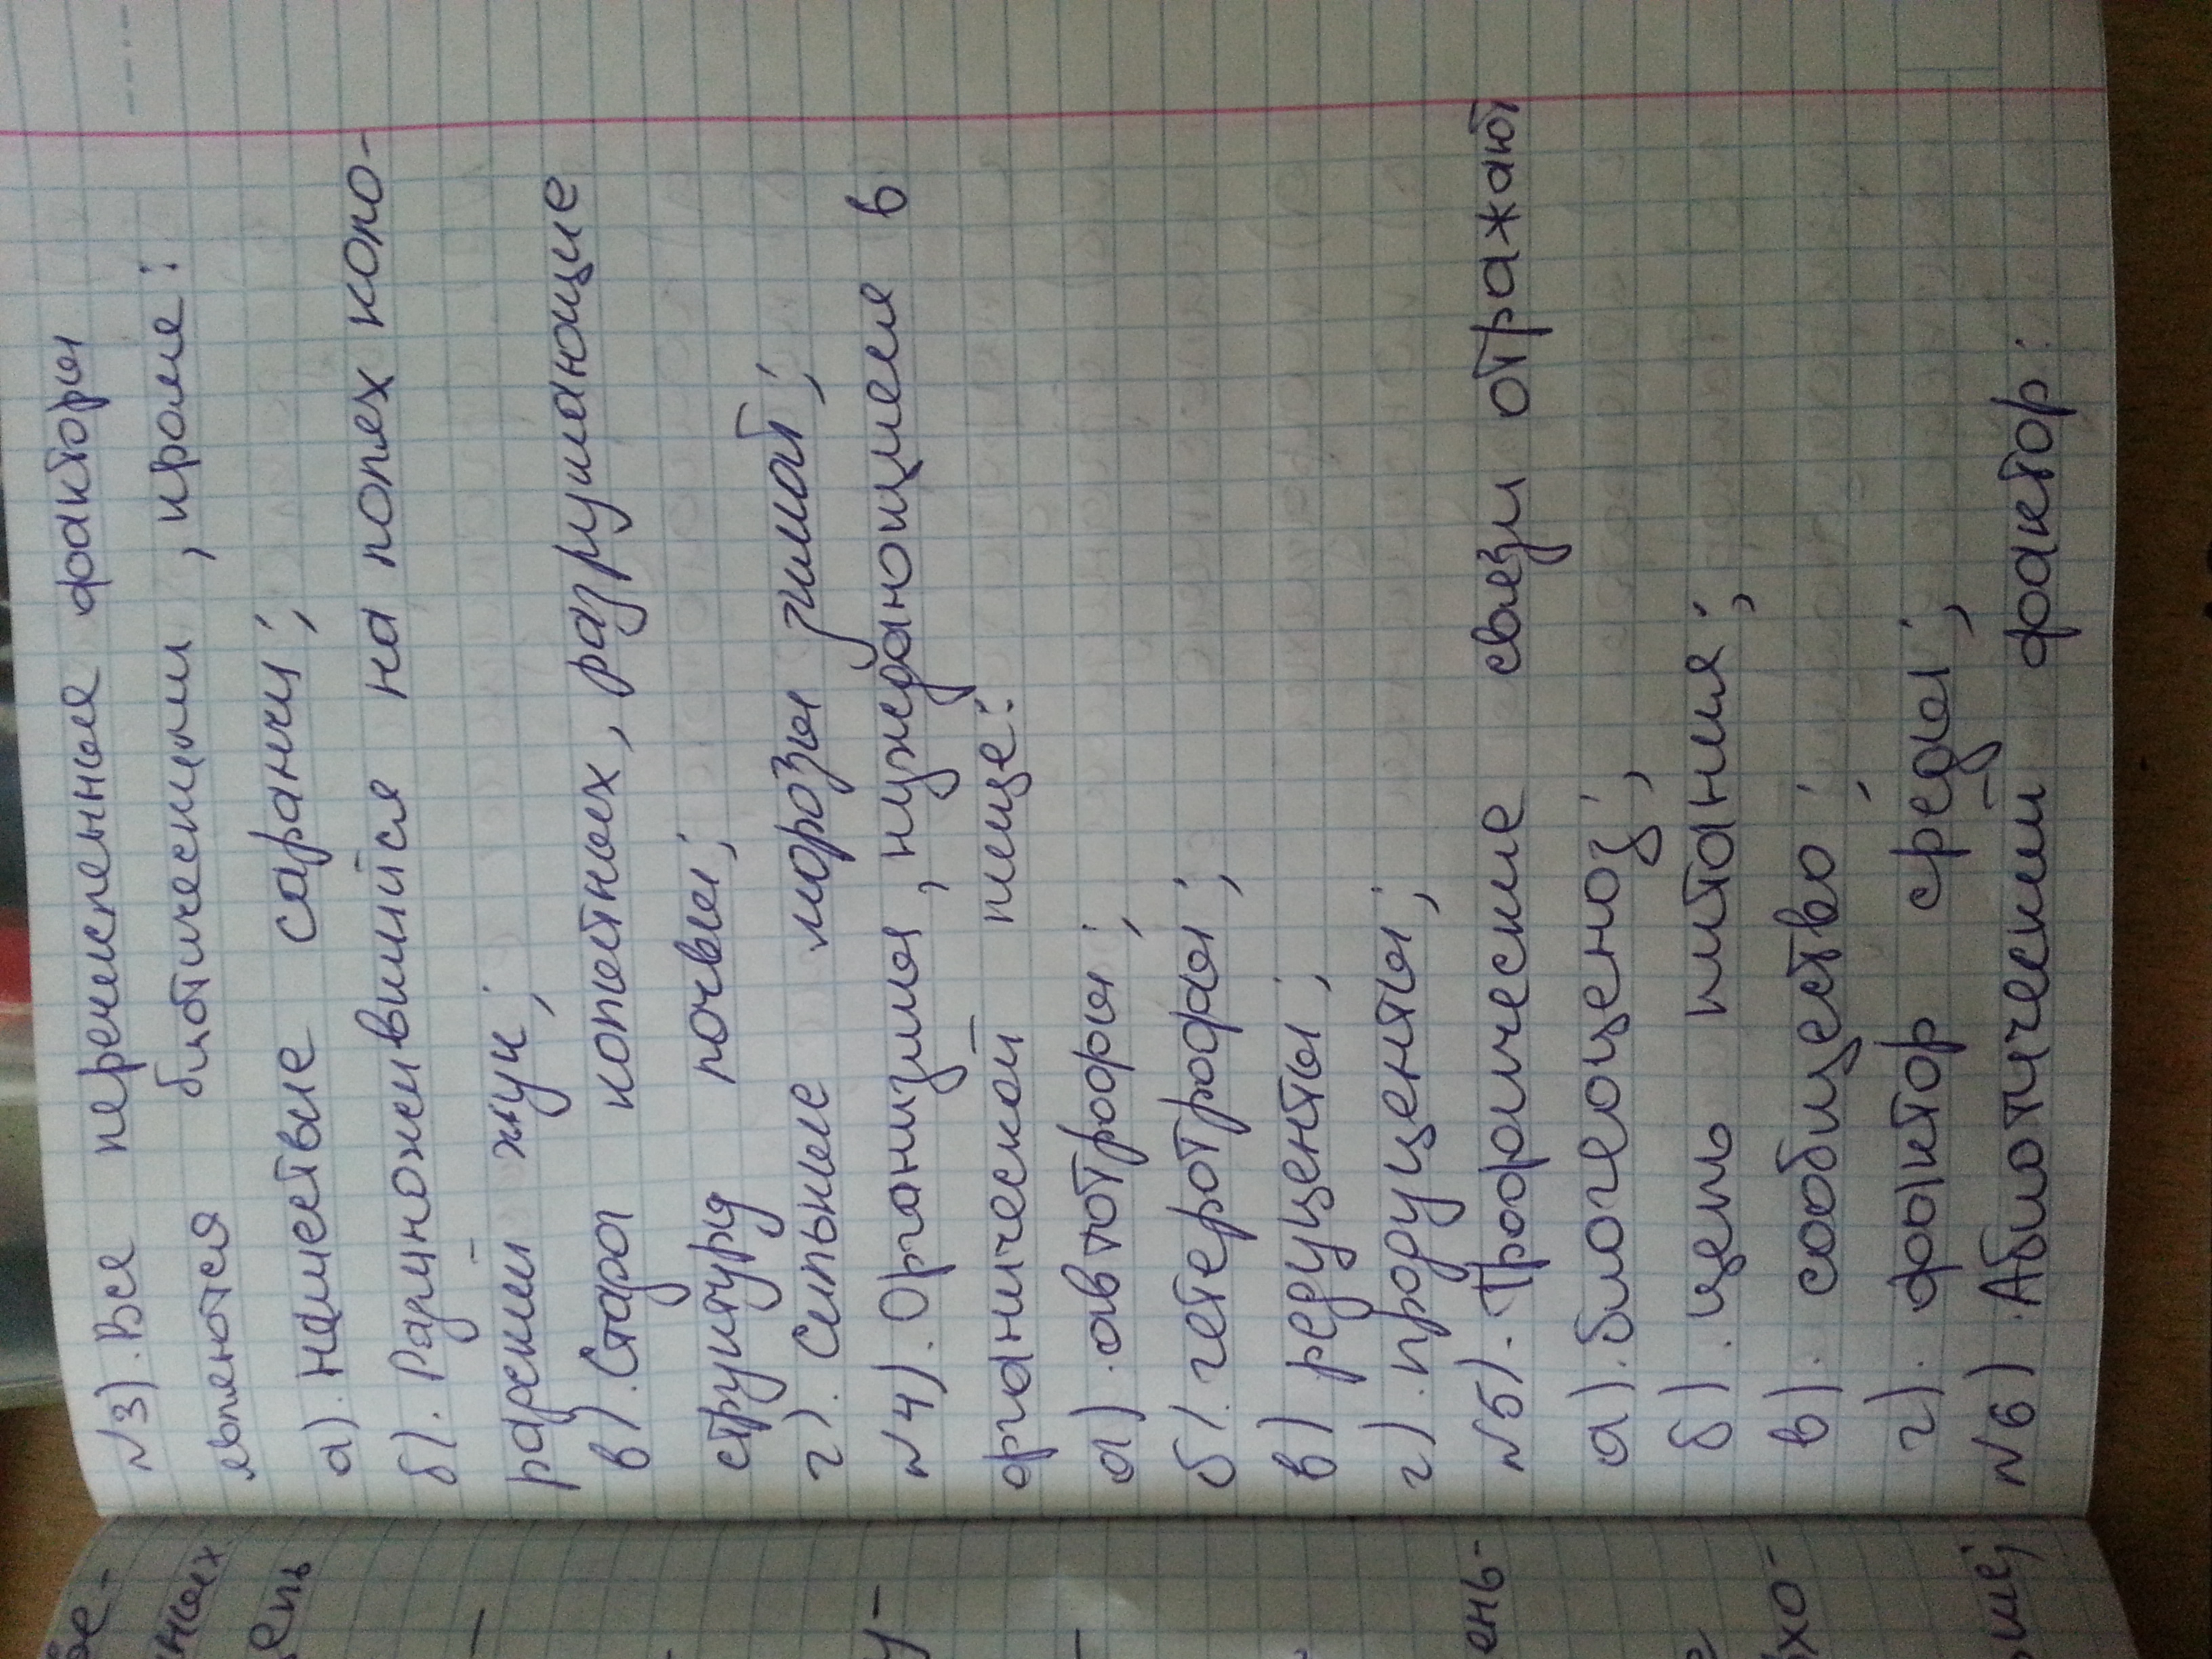 №3). Все перечисленные факторы
являются биотическими, кроме:
а). нашествие саранчи;
б). Размножившийся на полях коло-
радский жук;
в). Стада копытных, разрушающие
структуру почвы;
г). Сильные морозы зимой;
№4). Организмы, нуждающиеся в
органической пище:
а). автотрофы;
б). гетеротрофы;
в) редуценты;
г). продуценты;
№5). Трофические связи отражают
а). биогеоценоз;
б). цепь питания;
в). сообщество;
г). фактор среды;
№6). Абиотический фактор:
нных
цепь
у-
ень-